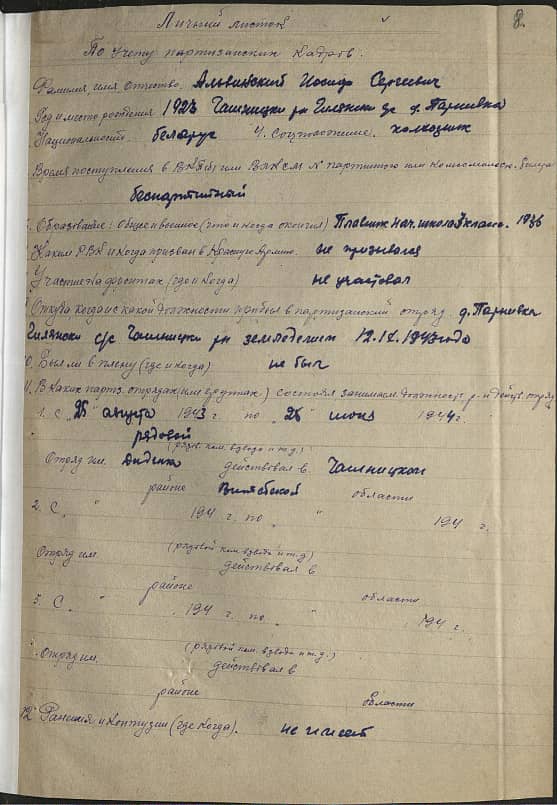 8.
Личный листок
По учету партизанских кадров.
Фамилия, имя Отчество, Альвинский Иосиф Сергеевич
Год и место рождения 1923 Чашницки рн Гилянски с/с д. Парневка
Национальность. белорус 4. Соц. положение. колхозник
Время поступления в ВКП(б) или ВЛКСМ N партийного или комсомольск. билета
беспартийный
Образование: общее и военное (что и когда окончил) нач. школа 3 класс. 1936
Каким РВК и когда призван в Красную Армию. не призывался
Участие на фронтах (где и когда) не участвовал
Откуда когда и с какой должности прибыл в партизанский отряд. д. Парневка
Гилянски с/с Чашницки рн земледелием 1943 года
10. Был ли в плену (где и когда) не был
11. В каких партз. отрядах (или бригадах) состоял занимаем. должность р-н действ. отряда
1. С "25" августа 1943 г. по "26" июня 1944 г.
рядовой
(рядов. ком. взвода и т.д.)
Отряд им. Диденко действовал в Чашницком
районе Витебской области
2. С " " 194 г. по " 194 г.
(рядовой ком. взвода и т.д)
Отряд им действовал в
районе области
3. С " " 194 г. по " 194 г.
(рядовой ком. взвода и т.д.)
Отряд им. действовал в
районе области
12 Ранения и контузии (где когда). не имеет